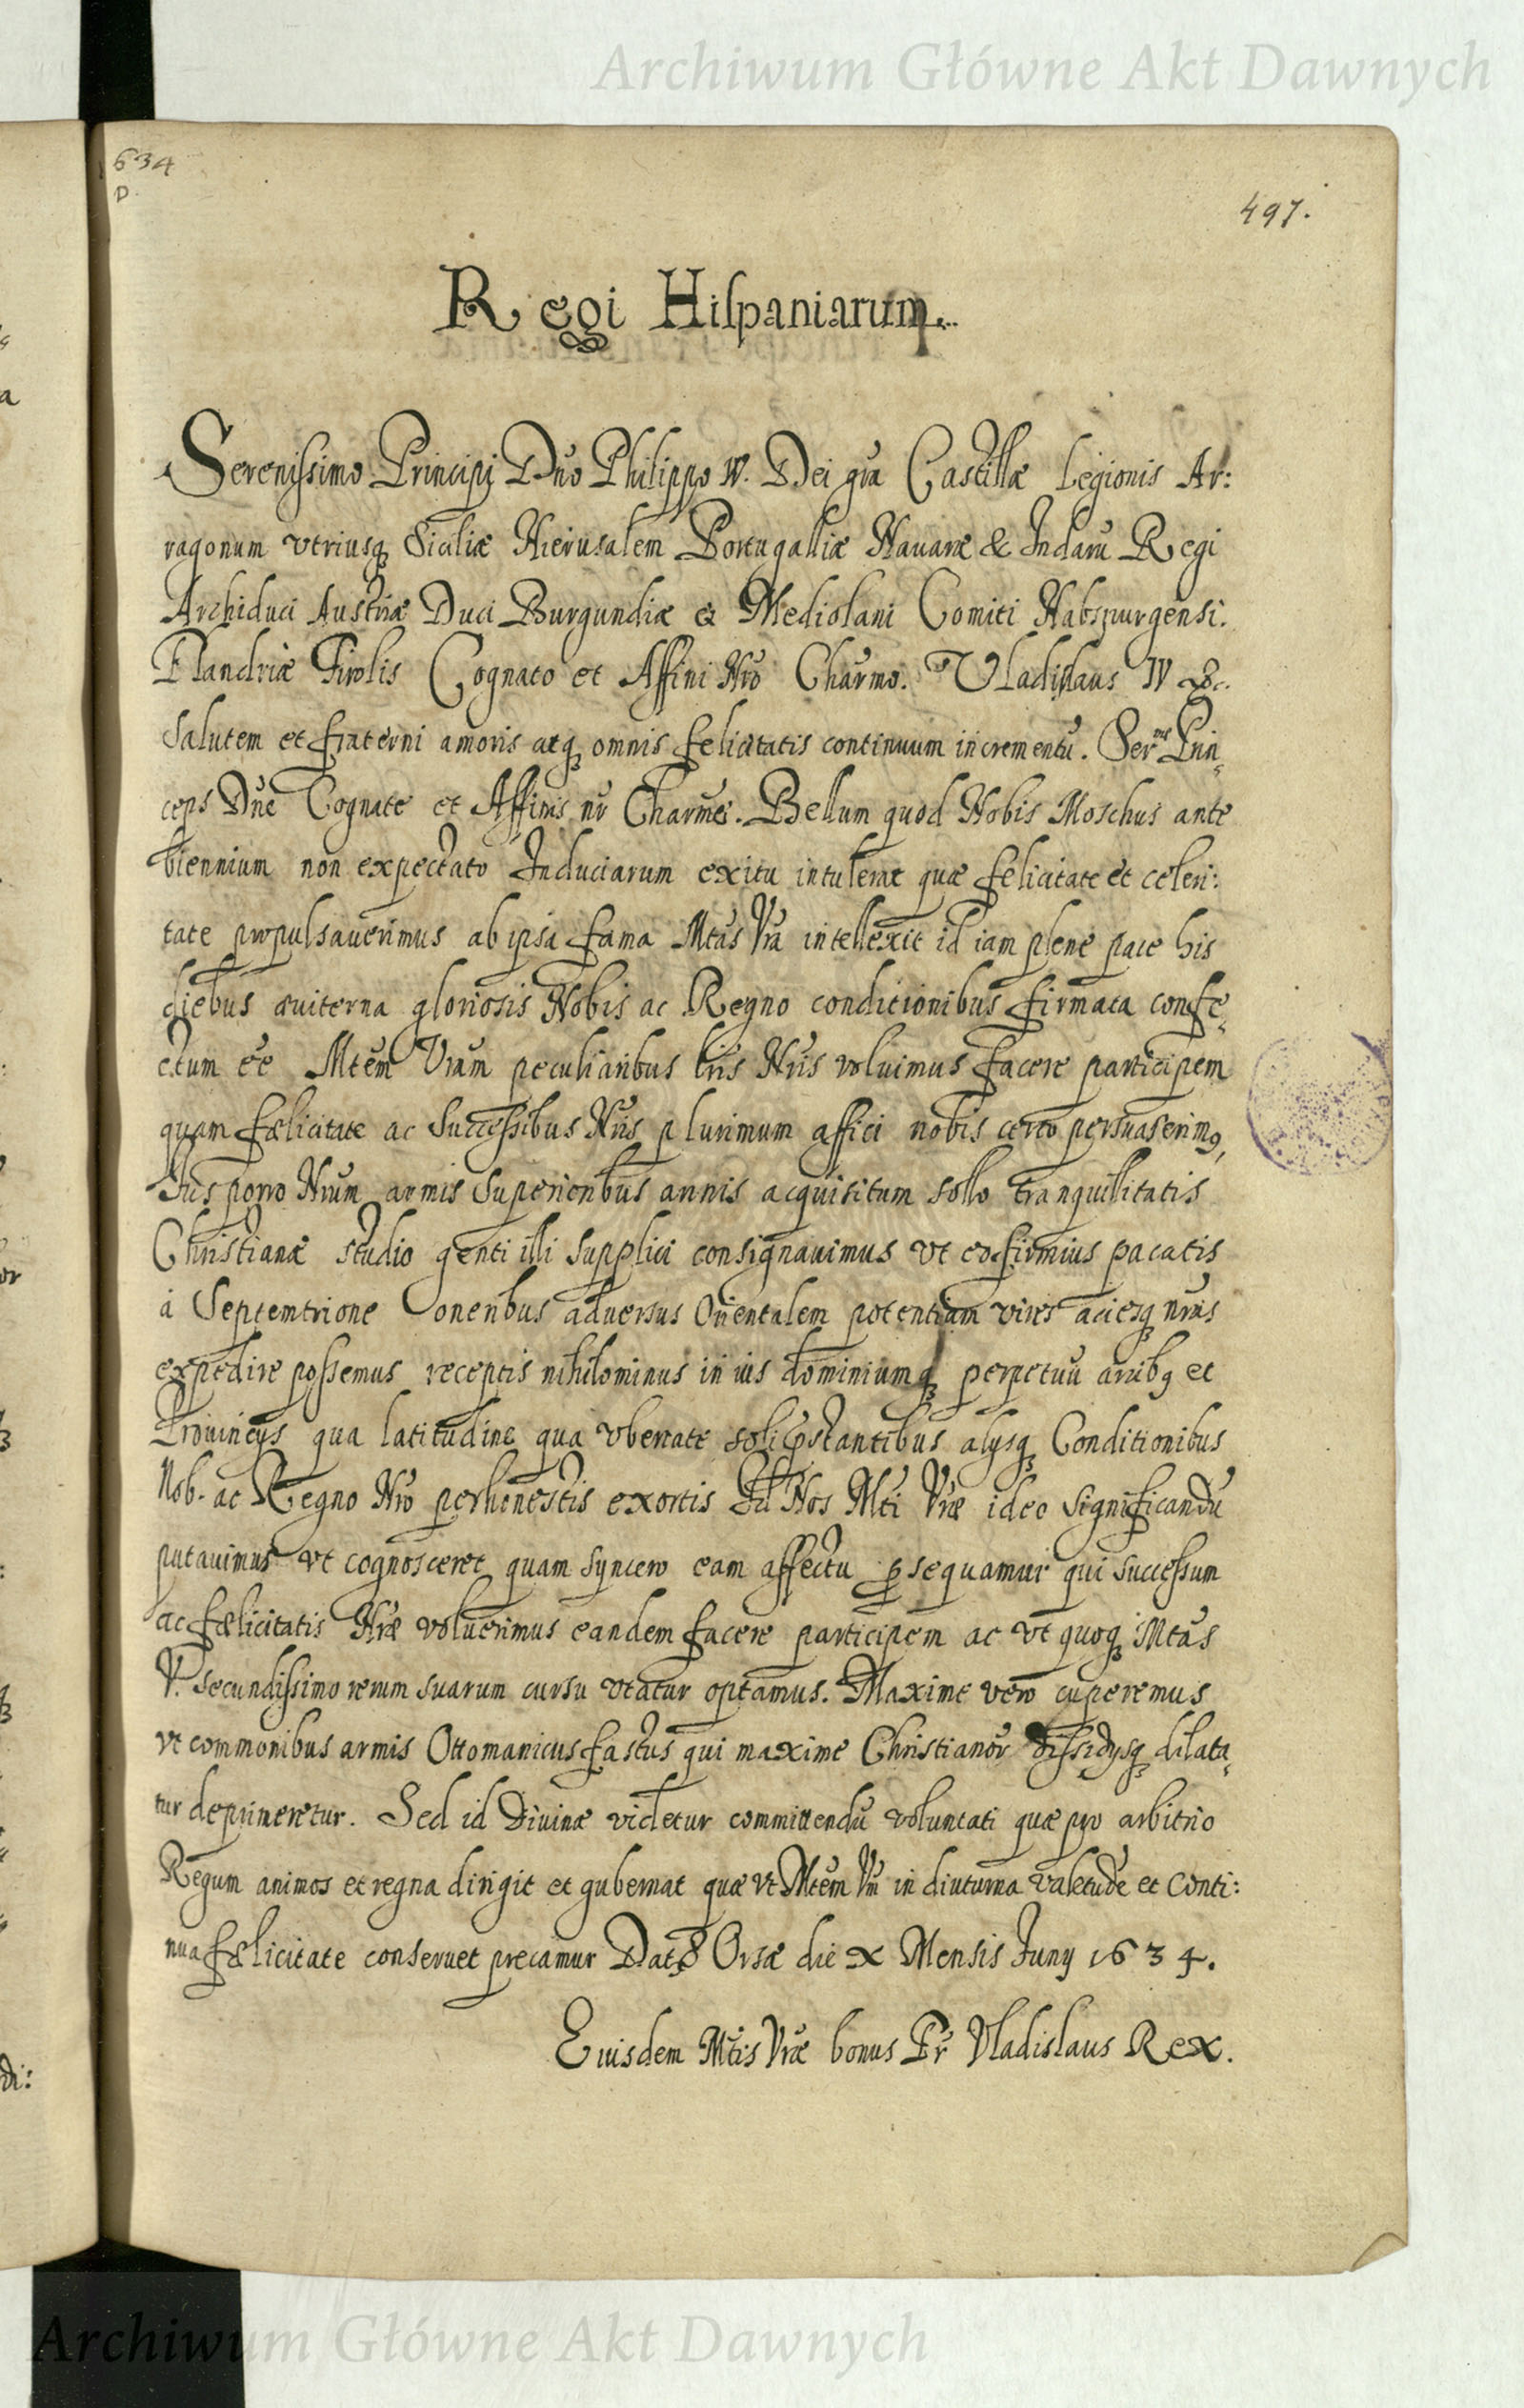 Archiwum Główne Akt Dawnych
634
D.
497.
Regi Hispaniarum.
Serenissimo Principi Dno Philippo IV. Dei gra Castillæ Legionis Ar:
ragonum vtriusq Siciliæ Hierusalem Portugalliæ Nauaræ & Indaru Regi
Archiduci Austriæ Duci Burgundiæ & Mediolani Comiti Habspurgensi.
Flandriæ Tirolis Cognato et Affini Nro Charmo. Vladislaus IV &c.
Salutem et fraterni amoris atq omnis felicitatis continuum incrementu. Serme Prin
ceps Dne Cognate et Affinis nr Charme. Bellum quod Nobis Moschus ante
biennium non expectato Induciarum exitu intulerat quæ felicitate et celeri:
tate propulsauerimus ab ipsa fama Mtas Vra intellexit id iam plene pace his
diebus æuiterna gloriosis Nobis ac Regno conditionibus firmata confe
ctum ee Mtem Vram peculiaribus lris Nris voluimus facere participem
quam fælicitate ac Successibus Nris plurimum affici nobis certo persuaserimq,
Jus porro Nrum armis Superioribus annis acquisitum sollo tranquillitatis
Christianæ studio genti illi supplici consignauimus vt eo firmius pacatis
à Septemtrione Conenbus aduersus Orientalem potentiam vires aciesq nras
expedire possemus receptis nihilominus in ius dominiumq perpetuu arcibq et
Prouincys qua latitudine qua vbertate soli pstantibus alysq Conditionibus
Nob. ac Regno Nro perhonestis exortis Id Nos Mti Vræ ideo significandu
putauimus vt cognosceret quam syncero eam affectu psequamur qui successum
ac fælicitatis Nræ voluerimus eandem facere participem ac vt quoq Mtas
V. secundissimo rerum suarum cursu vtatur optamus. Maxime vero cuperemus
vt commonibus armis Ottomanicus fastus qui maxime Christianor dissidysq dilata
tur deprimeretur. Sed id Diuinæ videtur committendu voluntati quæ pro arbitrio
Regum animos et regna dirigit et gubernat quæ vt Mtem Vm in diuturna valetude et Conti:
nua fælicitate conseruet precamur Dat Orsæ die X Mensis Juny 1634.
Eiusdem Mtis Vræ bonus Fr Vladislaus Rex.
Archiwum Główne Akt Dawnych